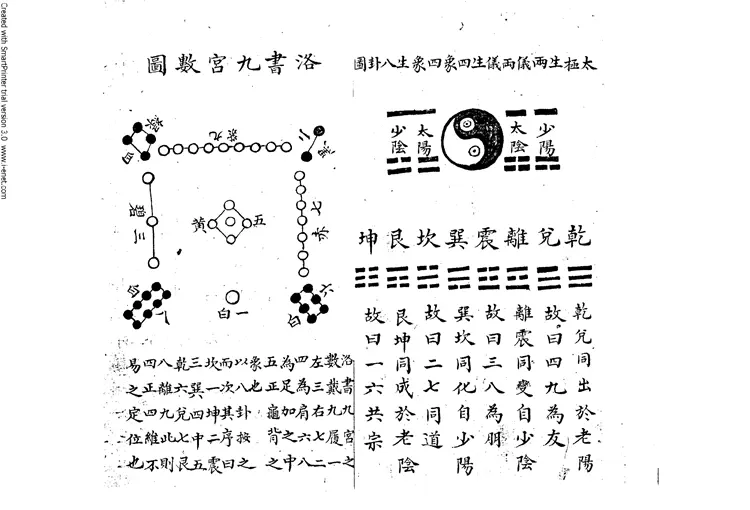 太極生兩儀兩儀生四象四象生八卦圖
少陽
太陰
太陽
少陰
乾兌離震巽坎艮坤
乾兌同出於老陽
故曰四九為友
離震同變自少陰
故曰三八為朋
巽坎同化自少陽
故曰二七同道
艮坤同成於老陰
故曰一六共宗
洛書九宮數圖
四綠
九紫
二黑
三碧
五黃
七赤
八白
一白
六白
洛書九宮之
數戴九履一
左三右七二
四為肩六八
為足加之中
五正龜背之
象也
以八卦按之
而次其序曰
坎一坤二震
三巽四中五
乾六兌七艮
八離九此則
四正四維不
易之定位也
Created with SmartPrinter trial version 3.0 www.i-enet.com